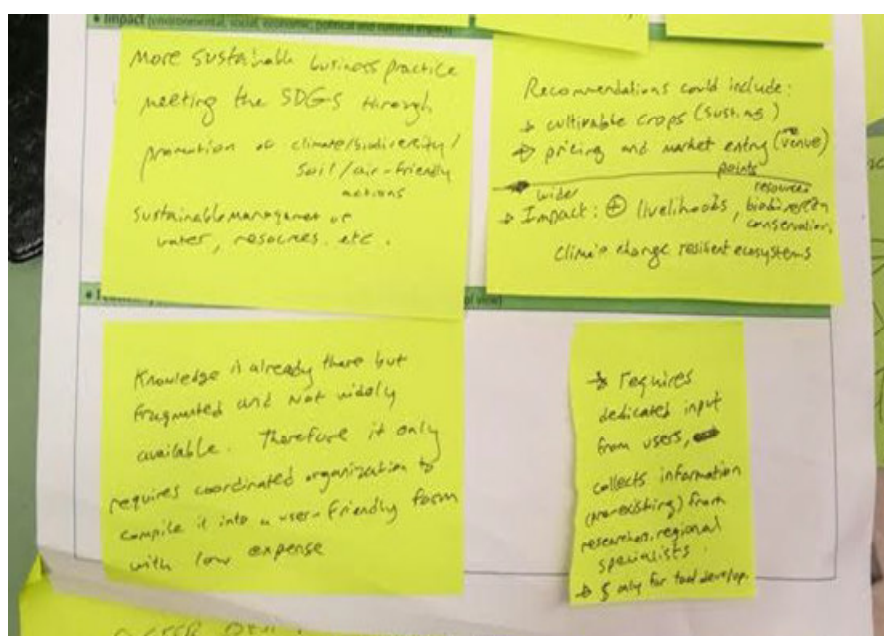 • Impact (environmental, social, economic, political and natural impact)
More sustainable business practice
meeting the SDGs through
promotion of climate/biodiversity/
soil/air-friendly
actions
Sustainable management of
water, resources. etc.
Recommendations could include:
→ cultivable crops (
→ pricing and market entry (venue)
points
wider
→ Impact: ⊕ livelihoods, resources
biodiversity
conservation,
climate change resilient ecosystems
Knowledge is already there but
fragmented and not widely
available. Therefore it only
requires coordinated organization to
compile it into a user-friendly form
with low expense
→ requires
dedicated input
from users,
collects information
(pre-existing) from
researchers, regional
specialists.
→ $ only for tool develop.